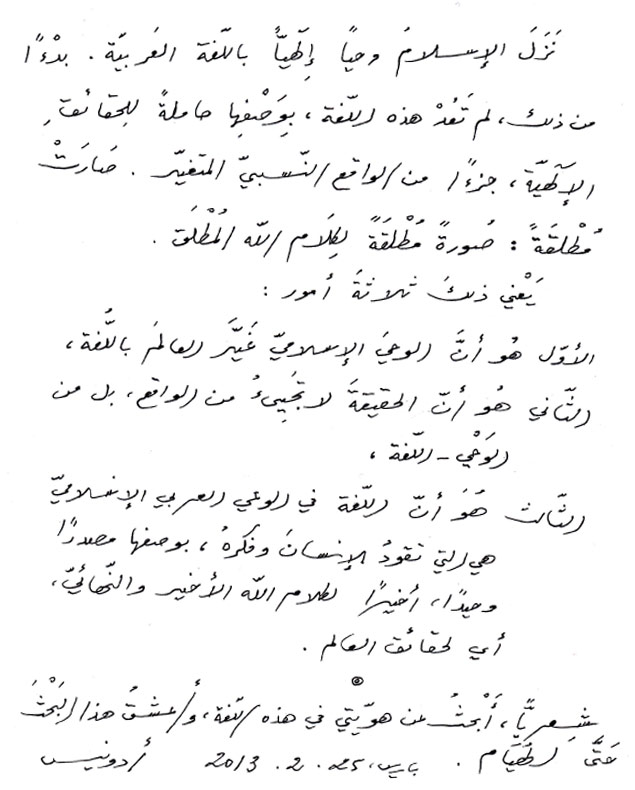 نَزَلَ الإسلامُ وحياً إلَهيّاً باللّغة العَربيّة. بدْءًا
من ذلك، لم تَعُدْ هذه اللّغة، بِوَصْفِها حاملةً لِلحقائقِ
الإلَهيّة، جزءًا من الواقع النّسبيّ المتغيّر. صَارَتْ
مُطْلَقَةً: صُورةً مُطْلَقَةً لِكلَام اللّه المُطْلَق.
يَعْني ذلكَ ثلاثةَ أمور:
الأوّل هُو أنَّ الوحيَ الإسلاميّ غَيَّرَ العالمَ باللُّغة،
الثّاني هُو أنّ الحقيقةَ لا تَجيءُ من الواقع، بل من
الوَحْي - اللّغة،
الثّالث هُوَ أنّ اللّغة في الوعي العربي الإسْلاميّ
هي التي تقودُ الإنسانَ وفكرهُ، بوصفها مصدرًا
وحيدًا، أخيرًا لكلام اللّه الأخير والنّهائيّ،
أي لحقائق العالم.
شِعريًّا، أبْحثُ عن هوّيتي في هذه اللّغة، وأعشقُ هذا البَحْثَ
حَتَّى الهُيَام. باريس، 25. 2. 2013 أدونيس